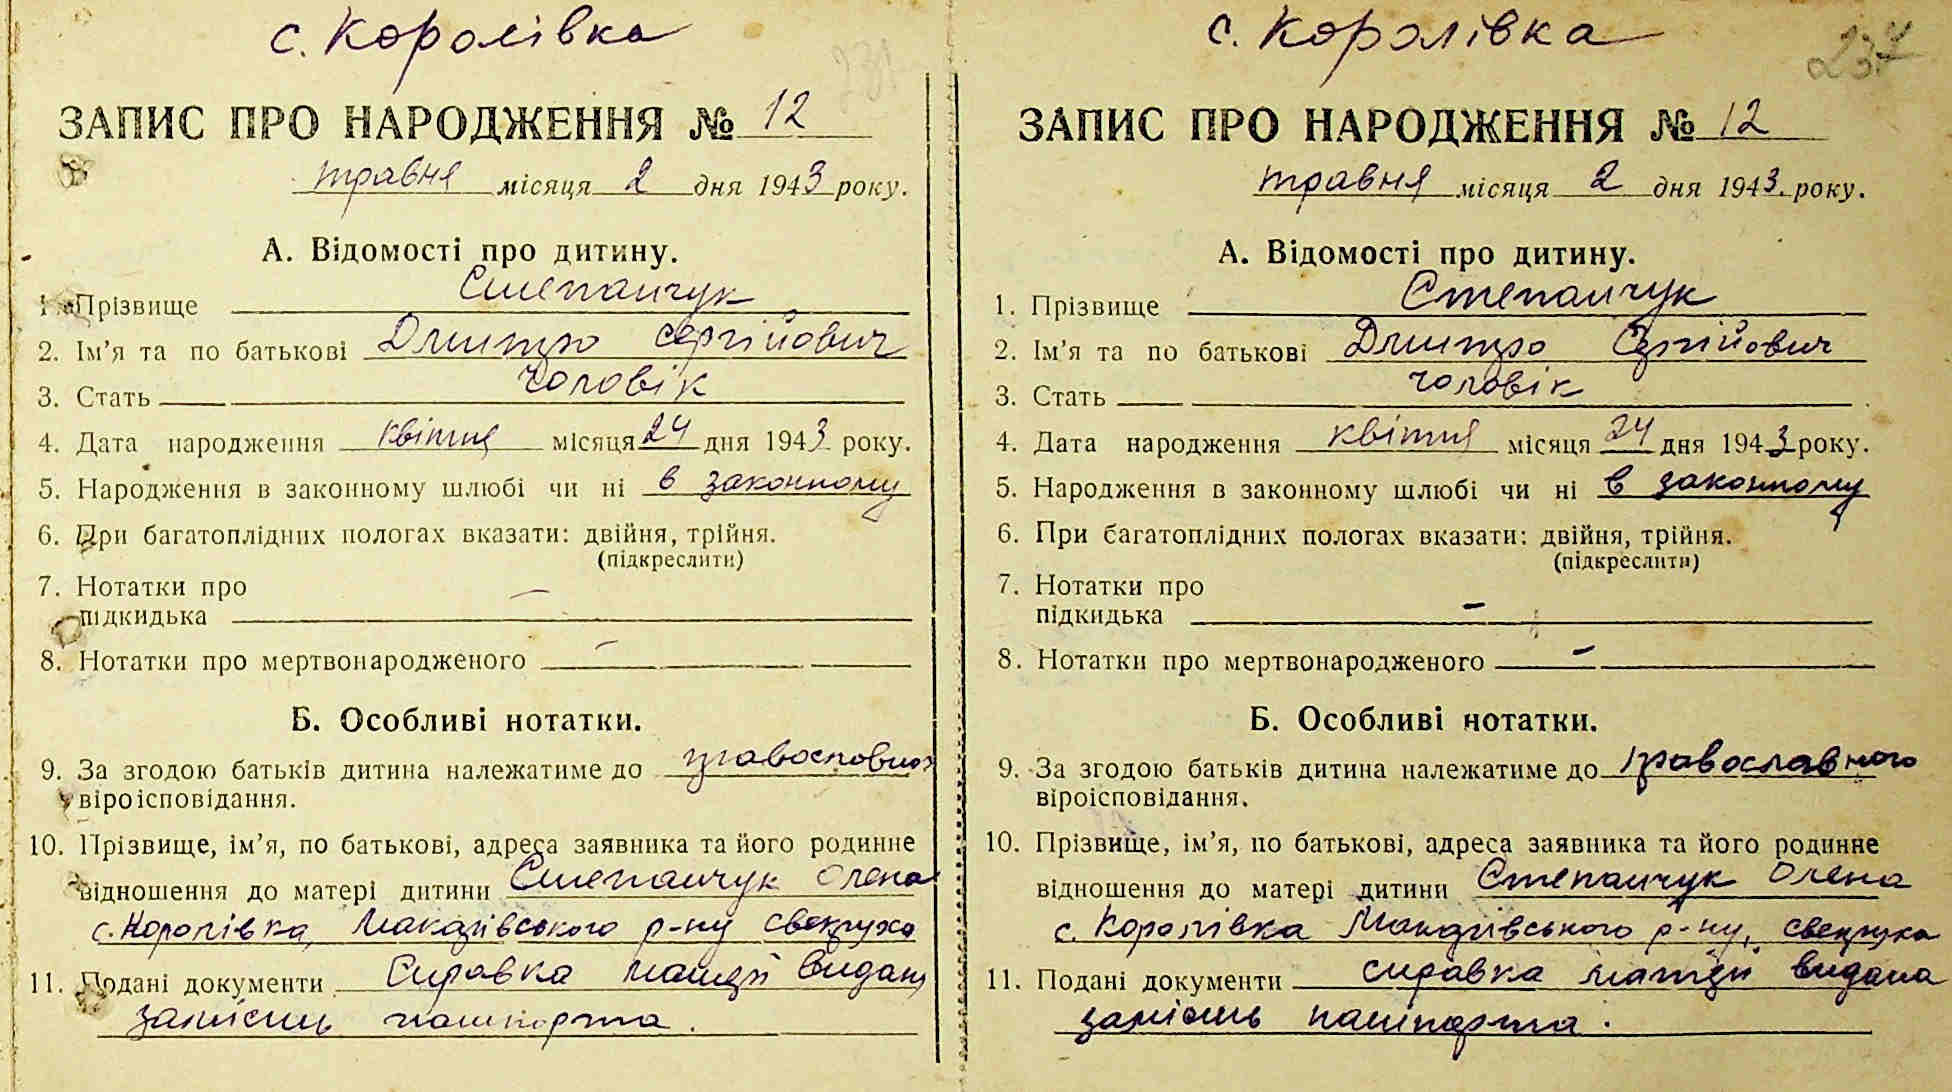 с. Королівка
ЗАПИС ПРО НАРОДЖЕННЯ № 12
травня місяця 2 дня 1943 року.
А. Відомості про дитину.
1. Прізвище Степанчук
2. Ім’я та по батькові Дмитро Сергійович
3. Стать чоловік
4. Дата народження квітня місяця 24 дня 1943 року.
5. Народження в законному шлюбі чи ні в законному
6. При багатоплідних пологах вказати: двійня, трійня.
(підкреслити)
7. Нотатки про
підкидька —
8. Нотатки про мертвонародженого —
Б. Особливі нотатки.
9. За згодою батьків дитина належатиме до православного
віроісповідання.
10. Прізвище, ім’я, по батькові, адреса заявника та його родинне
відношення до матері дитини Степанчук Олена
с. Королівка, Макарівського р-ну свекруха
11. Подані документи Справка матері видана
замість пашпорта.
с. Королівка
237
ЗАПИС ПРО НАРОДЖЕННЯ № 12
травня місяця 2 дня 1943. року.
А. Відомості про дитину.
1. Прізвище Степанчук
2. Ім’я та по батькові Дмитро Сергійович
3. Стать чоловік
4. Дата народження квітня місяця 24 дня 1943 року.
5. Народження в законному шлюбі чи ні в законному
6. При багатоплідних пологах вказати: двійня, трійня.
(підкреслити)
7. Нотатки про
підкидька —
8. Нотатки про мертвонародженого —
Б. Особливі нотатки.
9. За згодою батьків дитина належатиме до православного
віроісповідання.
10. Прізвище, ім’я, по батькові, адреса заявника та його родинне
відношення до матері дитини Степанчук Олена
с. Королівка Макарівського р-ну, свекруха
11. Подані документи справка матері видана
замість пашпорта.